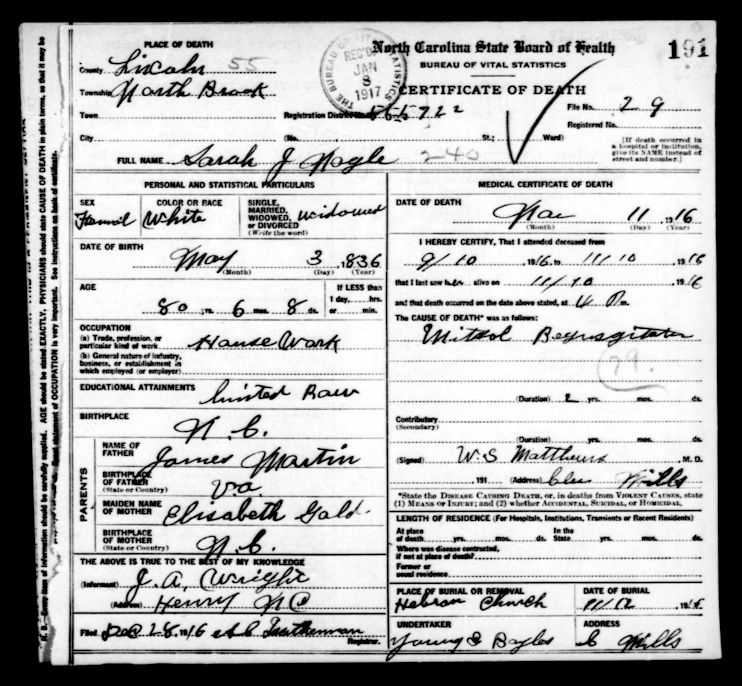 191
PLACE OF DEATH
North Carolina State Board of Health
BUREAU OF VITAL STATISTICS
CERTIFICATE OF DEATH
THE BUREAU OF VITAL STATISTICS
REC'D
JAN
8
1917
County Lincoln 55
Township North Brook
Town
Registration District No.
File No. 29
Registered No.
City (No. St.; Ward)
[If death occurred in a hospital or institution, give its NAME instead of street and number.]
FULL NAME Sarah J Nagle 240
PERSONAL AND STATISTICAL PARTICULARS
SEX
COLOR OR RACE White
SINGLE, MARRIED, WIDOWED, or DIVORCED (Write the word) widowed
DATE OF BIRTH
May 3, 1836
(Month) (Day) (Year)
AGE
80 yrs. 6 mos. 8 ds.
If LESS than 1 day, hrs. or min.
OCCUPATION
(a) Trade, profession, or particular kind of work House Work
(b) General nature of industry, business, or establishment in which employed (or employer)
EDUCATIONAL ATTAINMENTS
BIRTHPLACE
N.C.
PARENTS
NAME OF FATHER James Martin
BIRTHPLACE OF FATHER (State or Country) Va.
MAIDEN NAME OF MOTHER Elisabeth
BIRTHPLACE OF MOTHER (State or Country) N.C.
THE ABOVE IS TRUE TO THE BEST OF MY KNOWLEDGE
(Informant) J. A. Wright
(Address) Henry NC
Filed Dec 28, 1916
Registrar.
MEDICAL CERTIFICATE OF DEATH
DATE OF DEATH
11, 1916
(Month) (Day) (Year)
I HEREBY CERTIFY, That I attended deceased from
9/10, 1916, to 11/10, 1916
that I last saw her alive on 11/10, 1916
and that death occurred on the date above stated, at 4 P.m.
The CAUSE OF DEATH* was as follows:
79.
(Duration) 2 yrs. mos. ds.
Contributory
(Secondary)
(Duration) yrs. mos. ds.
(Signed) W.S Matthews, M. D.
, 191 (Address) Mills
*State the DISEASE CAUSING DEATH, or, in deaths from VIOLENT CAUSES, state
(1) MEANS OF INJURY; and (2) whether ACCIDENTAL, SUICIDAL, OR HOMICIDAL.
LENGTH OF RESIDENCE (For Hospitals, Institutions, Transients or Recent Residents)
At place of death yrs. mos. ds. In the State yrs. mos. ds.
Where was disease contracted, if not at place of death?
Former or usual residence
PLACE OF BURIAL OR REMOVAL
Hebron Church
DATE OF BURIAL
11/12, 1916
UNDERTAKER
ADDRESS
C Mills